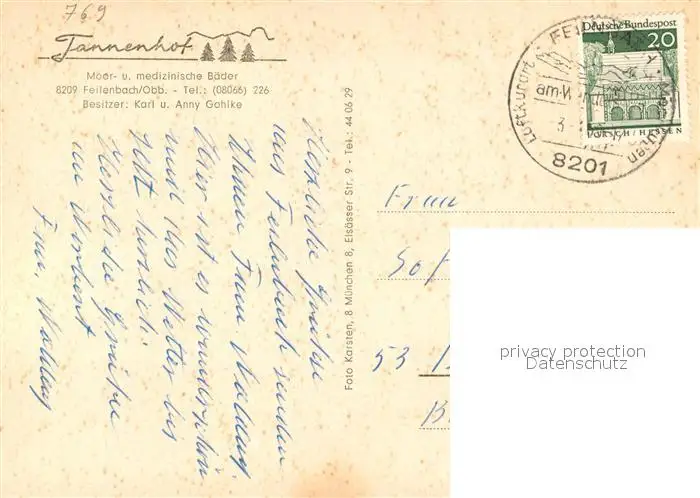 769
Tannenhof
Moor- u. medizinische Bäder
8209 Feilenbach/Obb. - Tel.: (08066) 226
Besitzer: Karl u. Anny Gohlke
Herzliche Grüße
aus Feilnbach senden
Ihnen Frau
Hier ist es wunderschön
und das Wetter bis
jetzt herrlich.
Herzliche Grüße
an
Frau
Foto Karsten, 8 München 8, Elsässer Str. 9 - Tel.: 44 06 29
Deutsche Bundespost
20
LORSCH/HESSEN
Luftkurort
am Wendelstein
8201
Frau
Sof
53
privacy protection
for this image only